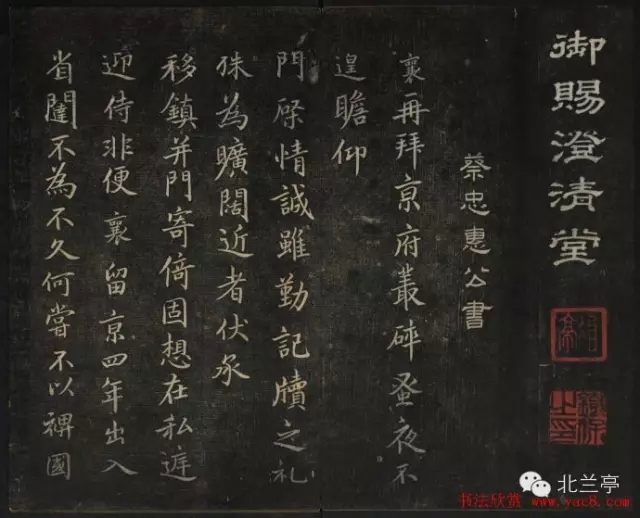 御賜澄清堂
蔡忠惠公書
襄再拜京府叢碎蚤夜不
遑瞻仰
門屏情誠雖勤記牘之礼
殊為曠闊近者伏承
移鎮并門寄倚固想在私遽
迎侍非便襄留京四年出入
省闥不為不久何嘗不以裨國
北兰亭
书法欣赏 www.yac8.com